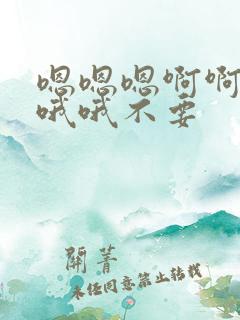 嗯嗯嗯啊啊
哦哦不要
關菁
未经同意禁止转载